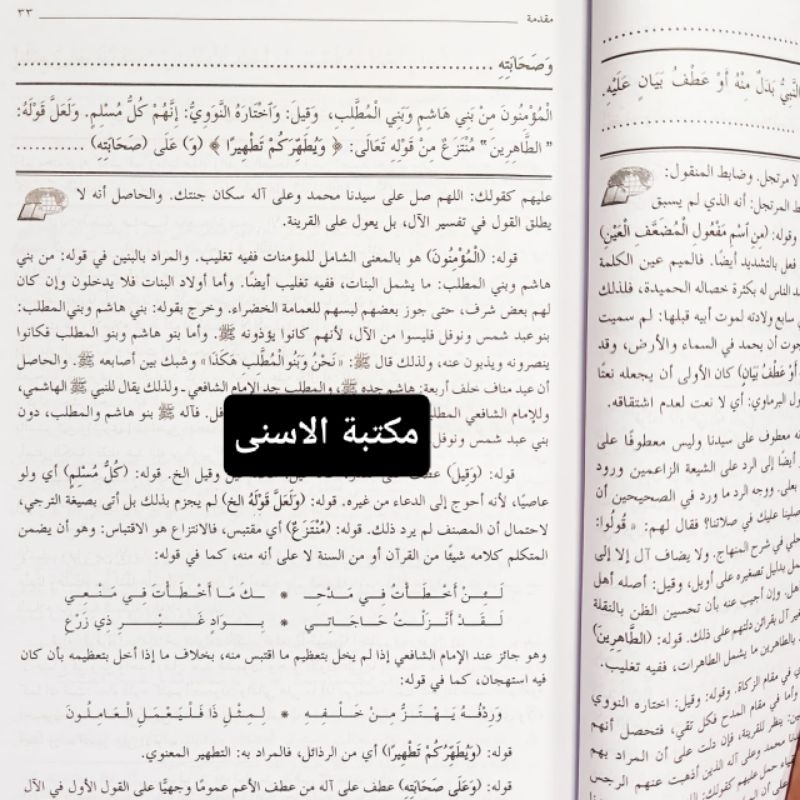 النَّبِيُّ بَدَلٌ مِنْهُ أَوْ عَطْفُ بَيَانٍ عَلَيْهِ.
لا مرتجل. وضابط المنقول:
المرتجل: أنه الذي لم يسبق
وقوله: (مِنِ اسْمِ مَفْعُولِ الْمُضَعَّفِ الْعَيْنِ)
فعل بالتشديد أيضًا. فالميم عين الكلمة
الناس له بكثرة خصاله الحميدة، فلذلك
سابع ولادته لموت أبيه قبلها: لم سميت
أن يحمد في السماء والأرض، وقد
(أَوْ عَطْفُ بَيَانٍ) كان الأولى أن يجعله نعتًا
البرماوي: أي لا نعت لعدم اشتقاقه.
معطوف على سيدنا وليس معطوفًا على
أيضًا إلى الرد على الشيعة الزاعمين ورود
بعلى. ووجه الرد ما ورد في الصحيحين أن
عليك في صلاتنا؟ فقال لهم: «قُولُوا:
في شرح المنهاج. ولا يضاف آل إلا إلى
بدليل تصغيره على أويل، وقيل: أصله أهل
وإن أجيب عنه بأن تحسين الظن بالنقلة
آل بقرائن دلتهم على ذلك. قوله: (الطَّاهِرِينَ)
بالطاهرين ما يشمل الطاهرات، ففيه تغليب.
في مقام الزكاة. وقوله: وقيل: اختاره النووي
وأما في مقام المدح فكل تقي، فتحصل أنهم
ينظر للقرينة، فإن دلت على أن المراد بهم
محمد وعلى آله الذين أذهبت عنهم الرجس
حمل عليهم كقولك:
مقدمة ٣٣
وَصَحَابَتِهِ
الْمُؤْمِنُونَ مِنْ بَنِي هَاشِمٍ وَبَنِي الْمُطَّلِبِ، وَقِيلَ: وَاخْتَارَهُ النَّوَوِيُّ: إِنَّهُمْ كُلُّ مُسْلِمٍ. وَلَعَلَّ قَوْلَهُ:
"الطَّاهِرِينَ" مُنْتَزَعٌ مِنْ قَوْلِهِ تَعَالَى: ﴿ وَيُطَهِّرَكُمْ تَطْهِيرًا ﴾ (وَ) عَلَى (صَحَابَتِهِ)
عليهم كقولك: اللهم صل على سيدنا محمد وعلى آله سكان جنتك. والحاصل أنه لا
يطلق القول في تفسير الآل، بل يعول على القرينة.
قوله: (الْمُؤْمِنُونَ) هو بالمعنى الشامل للمؤمنات ففيه تغليب. والمراد بالبنين في قوله: من بني
هاشم وبني المطلب: ما يشمل البنات، ففيه تغليب أيضًا. وأما أولاد البنات فلا يدخلون وإن كان
لهم بعض شرف، حتى جوز بعضهم لبسهم للعمامة الخضراء. وخرج بقوله: بني هاشم وبني المطلب:
بنو عبد شمس ونوفل فليسوا من الآل، لأنهم كانوا يؤذونه ﷺ. وأما بنو هاشم وبنو المطلب فكانوا
ينصرونه ويذبون عنه، ولذلك قال ﷺ: «نَحْنُ وَبَنُو الْمُطَّلِبِ هَكَذَا» وشبك بين أصابعه ﷺ. والحاصل
أن عبد مناف خلف أربعة: هاشم جده ﷺ، والمطلب جد الإمام الشافعي. ولذلك يقال للنبي ﷺ الهاشمي،
وللإمام الشافعي فآله ﷺ بنو هاشم والمطلب، دون
بني عبد شمس ونوفل
مكتبة الاسنى
قوله: (وَقِيلَ) وقيل الخ. قوله: (كُلُّ مُسْلِمٍ) أي ولو
عاصيًا، لأنه أحوج إلى الدعاء من غيره. قوله: (وَلَعَلَّ قَوْلَهُ الخ) لم يجزم بذلك بل أتى بصيغة الترجي،
لاحتمال أن المصنف لم يرد ذلك. قوله: (مُنْتَزَعٌ) أي مقتبس، فالانتزاع هو الاقتباس: وهو أن يضمن
المتكلم كلامه شيئًا من القرآن أو من السنة لا على أنه منه، كما في قوله:
لَـئِـنْ أَخْـطَـأْتُ فِـي مَـدْحِـ * ـكَ مَـا أَخْـطَـأْتَ فِـي مَـنْـعِـي
لَـقَـدْ أَنْـزَلْـتُ حَـاجَـاتِـي * بِـوَادٍ غَـيْـرِ ذِي زَرْعِ
وهو جائز عند الإمام الشافعي إذا لم يخل بتعظيم ما اقتبس منه، بخلاف ما إذا أخل بتعظيمه بأن كان
فيه استهجان، كما في قوله:
وَرِدْفُـهُ يَـهْـتَـزُّ مِـنْ خَـلْـفِـهِ * لِـمِـثْـلِ ذَا فَلْيَعْمَلِ الْعَامِلُونَ
قوله: (وَيُطَهِّرَكُمْ تَطْهِيرًا) أي من الرذائل، فالمراد به: التطهير المعنوي.
قوله: (وَعَلَى صَحَابَتِهِ) عطف على آله من عطف الأعم عمومًا وجهيًّا على القول الأول في الآل